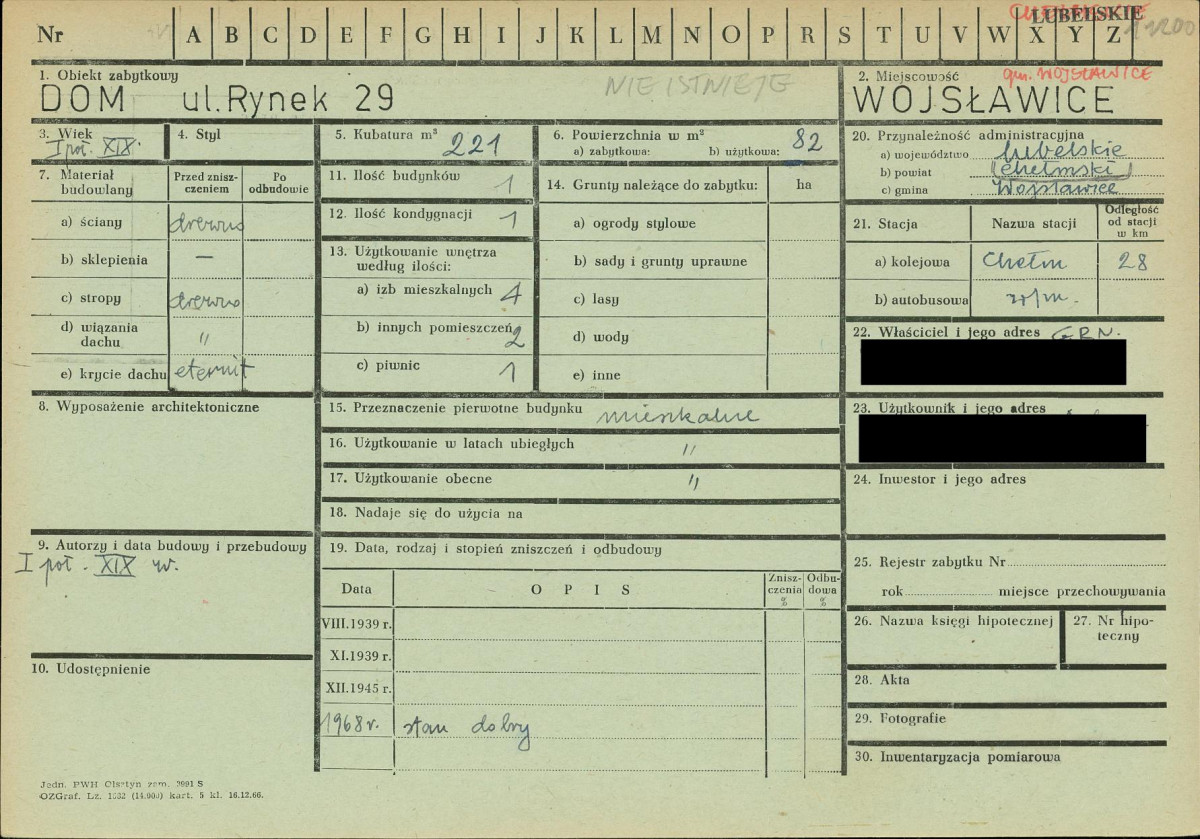 Nr A B C D E F G H I J K L M N O P R S T U V W X Y Z
LUBELSKIE
1. Obiekt zabytkowy
DOM ul. Rynek 29
NIE ISTNIEJE
2. Miejscowość
gm. WOJSŁAWICE
WOJSŁAWICE
3. Wiek
I poł. XIX.
4. Styl
5. Kubatura m³ 221
6. Powierzchnia w m²
a) zabytkowa: b) użytkowa: 82
7. Materiał budowlany
Przed znisz-
czeniem
Po
odbudowie
a) ściany drewno
b) sklepienia —
c) stropy drewno
d) wiązania
dachu "
e) krycie dachu eternit
8. Wyposażenie architektoniczne
9. Autorzy i data budowy i przebudowy
I poł. XIX w.
10. Udostępnienie
11. Ilość budynków 1
12. Ilość kondygnacji 1
13. Użytkowanie wnętrza
według ilości:
a) izb mieszkalnych 4
b) innych pomieszczeń 2
c) piwnic 1
14. Grunty należące do zabytku: ha
a) ogrody stylowe
b) sady i grunty uprawne
c) lasy
d) wody
e) inne
15. Przeznaczenie pierwotne budynku mieszkalne
16. Użytkowanie w latach ubiegłych "
17. Użytkowanie obecne "
18. Nadaje się do użycia na
19. Data, rodzaj i stopień zniszczeń i odbudowy
Data
O P I S
Znisz-
czenia
%
Odbu-
dowa
%
VIII.1939 r.
XI.1939 r.
XII.1945 r.
1968 r. stan dobry
20. Przynależność administracyjna
a) województwo lubelskie
b) powiat chełmski
c) gmina Wojsławice
21. Stacja
Nazwa stacji
Odległość
od stacji
w km
a) kolejowa Chełm 28
b) autobusowa w/m.
22. Właściciel i jego adres GRN.
23. Użytkownik i jego adres
24. Inwestor i jego adres
25. Rejestr zabytku Nr
rok miejsce przechowywania
26. Nazwa księgi hipotecznej
27. Nr hipo-
teczny
28. Akta
29. Fotografie
30. Inwentaryzacja pomiarowa
Jedn. PWH Olsztyn zam. 3091 S
OZGraf. Lz. 1332 (14.000) kart. 5 kl. 16.12.66.